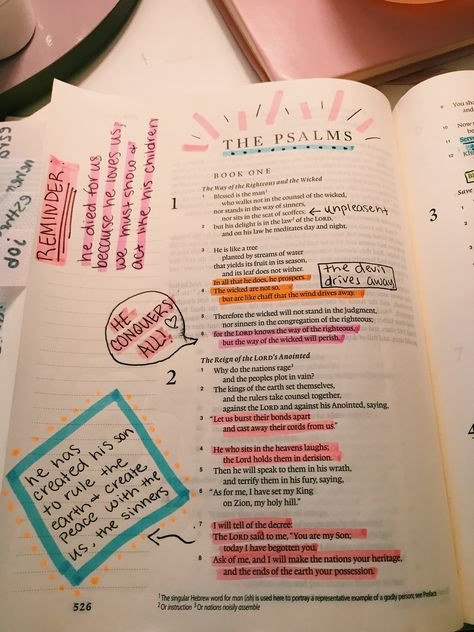 THE PSALMS
BOOK ONE
The Way of the Righteous and the Wicked
1
1 Blessed is the man¹
who walks not in the counsel of the wicked,
nor stands in the way of sinners,
nor sits in the seat of scoffers;
← unpleasent
2 but his delight is in the law² of the LORD,
and on his law he meditates day and night.
3 He is like a tree
planted by streams of water
that yields its fruit in its season,
and its leaf does not wither.
In all that he does, he prospers.
4 The wicked are not so,
but are like chaff that the wind drives away.
the devil
drives away
5 Therefore the wicked will not stand in the judgment,
nor sinners in the congregation of the righteous;
6 for the LORD knows the way of the righteous,
but the way of the wicked will perish.
The Reign of the LORD's Anointed
2
1 Why do the nations rage³
and the peoples plot in vain?
2 The kings of the earth set themselves,
and the rulers take counsel together,
against the LORD and against his Anointed, saying,
3 "Let us burst their bonds apart
and cast away their cords from us."
4 He who sits in the heavens laughs;
the Lord holds them in derision.
5 Then he will speak to them in his wrath,
and terrify them in his fury, saying,
6 "As for me, I have set my King
on Zion, my holy hill."
7 I will tell of the decree:
The LORD said to me, "You are my Son;
today I have begotten you.
8 Ask of me, and I will make the nations your heritage,
and the ends of the earth your possession.
¹ The singular Hebrew word for man (ish) is used here to portray a representative example of a godly person; see Preface
² Or instruction ³ Or nations noisily assemble
526
REMINDER:
he died for us
because he loves us,
we must show &
act like his children
HE
CONQUERS
ALL!
he has
created his son
to rule the
earth & create
peace with the
us, the sinners
You sha
3
4